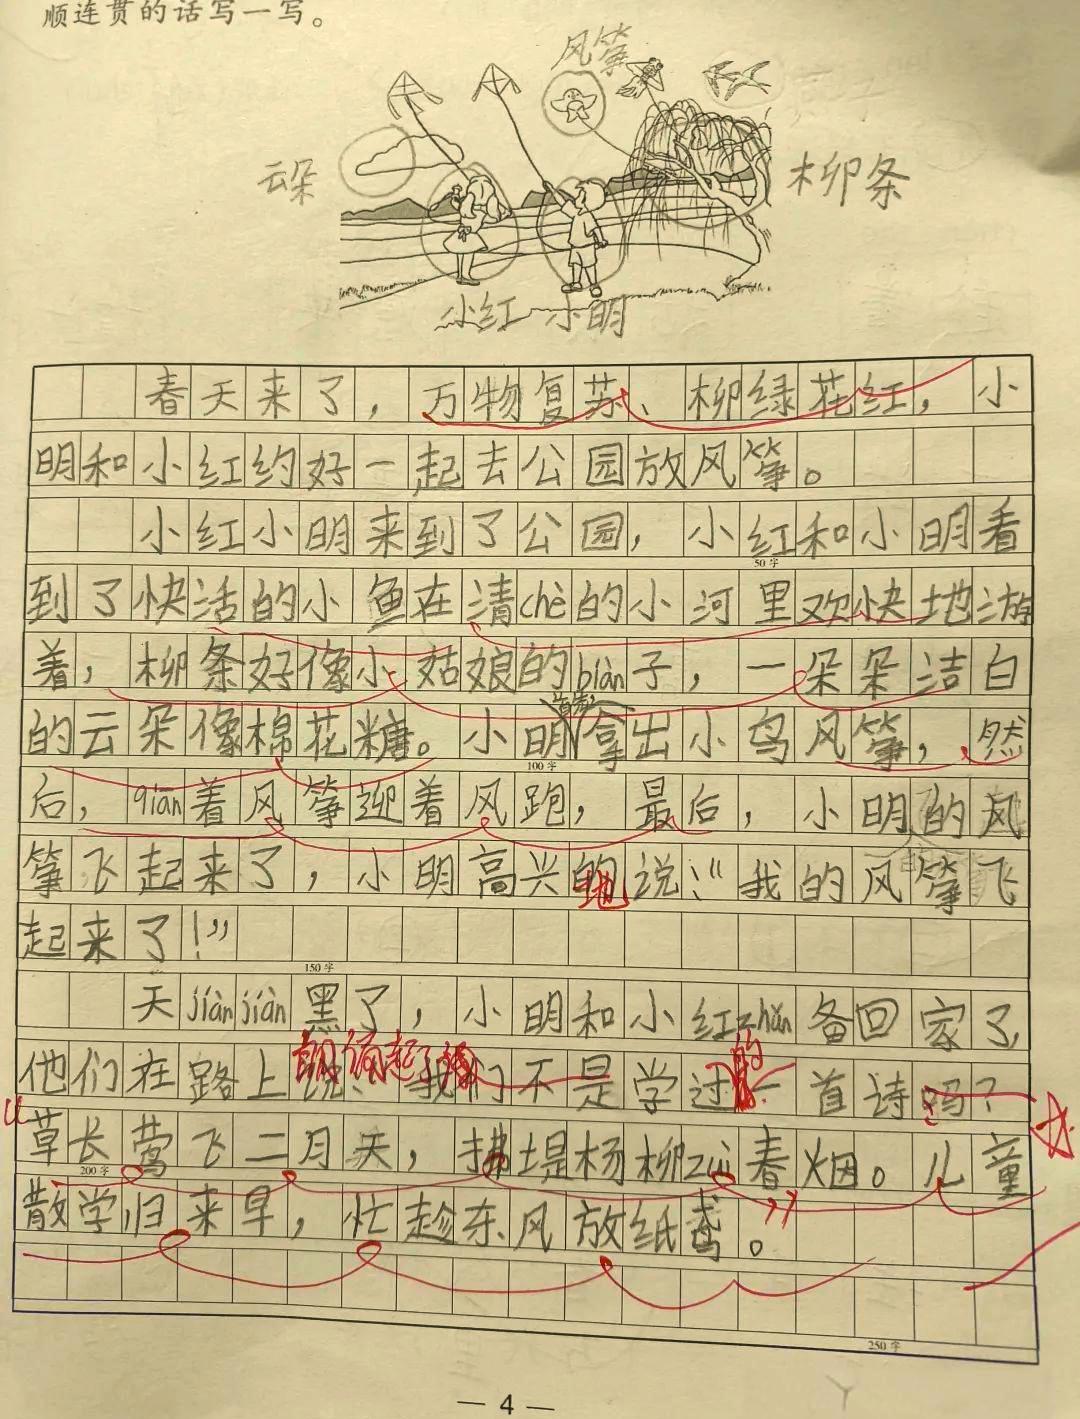 顺连贯的话写一写。
风筝
云朵
柳条
小红 小明
春天来了，万物复苏、柳绿花红，小
明和小红约好一起去公园放风筝。
小红小明来到了公园，小红和小明看
50字
到了快活的小鱼在清chè的小河里欢快地游
着，柳条好像小姑娘的biàn子，一朵朵洁白
首先
的云朵像棉花糖。小明拿出小鸟风筝，然
100字
后，qiān着风筝迎着风跑，最后，小明的风
筝飞起来了，小明高兴地说：“我的风筝飞
起来了！”
150字
天jiànjiàn黑了，小明和小红zhǔn备回家了，
的
他们在路上我们不是学过一首诗吗？
“草长莺飞二月天，拂堤杨柳zuì春烟。儿童
200字
散学归来早，忙趁东风放纸鸢。”
250字
— 4 —